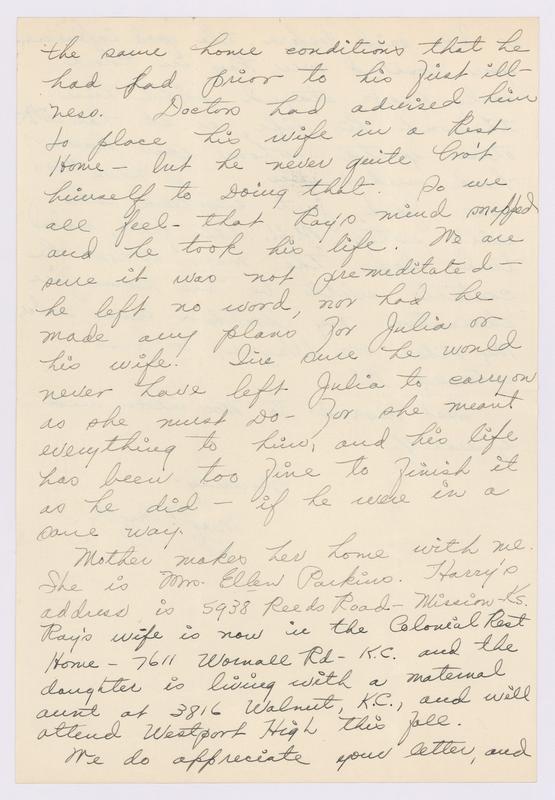 the same home conditions that he
had had prior to his first ill-
ness. Doctors had advised him
to place his wife in a Rest
Home - but he never quite bro't
himself to doing that. So we
all feel - that Ray's mind snapped
and he took his life. We are
sure it was not premeditated -
he left no word, nor had he
made any plans for Julia or
his wife. I'm sure he would
never have left Julia to carry on
as she must do - for she meant
everything to him, and his life
has been too fine to finish it
as he did - if he were in a
sane way.
Mother makes her home with me.
She is Mrs. Ellen Parkins. Harry's
address is 5938 Reeds Road - Mission - Ks.
Ray's wife is now in the Colonial Rest
Home - 7611 Wornall Rd - K.C. and the
daughter is living with a maternal
aunt at 3816 Walnut, K.C., and will
attend Westport High this fall.
We do appreciate your letter, and